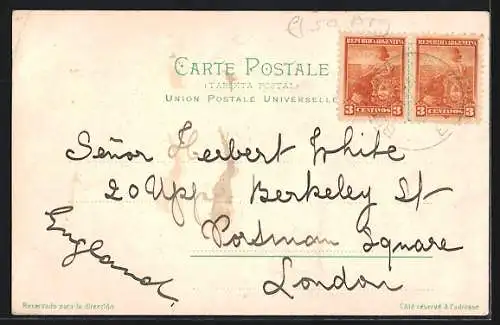 CARTE POSTALE
(TARJETA POSTAL)
UNION POSTALE UNIVERSELLE
REPUBLICA ARGENTINA REPUBLICA ARGENTINA
3 CENTAVOS 3 3 CENTAVOS 3
Señor Herbert White
20 Upp. Berkeley St
Portman Square
London
England.
Reservado para la dirección
Côté réservé à l'adresse